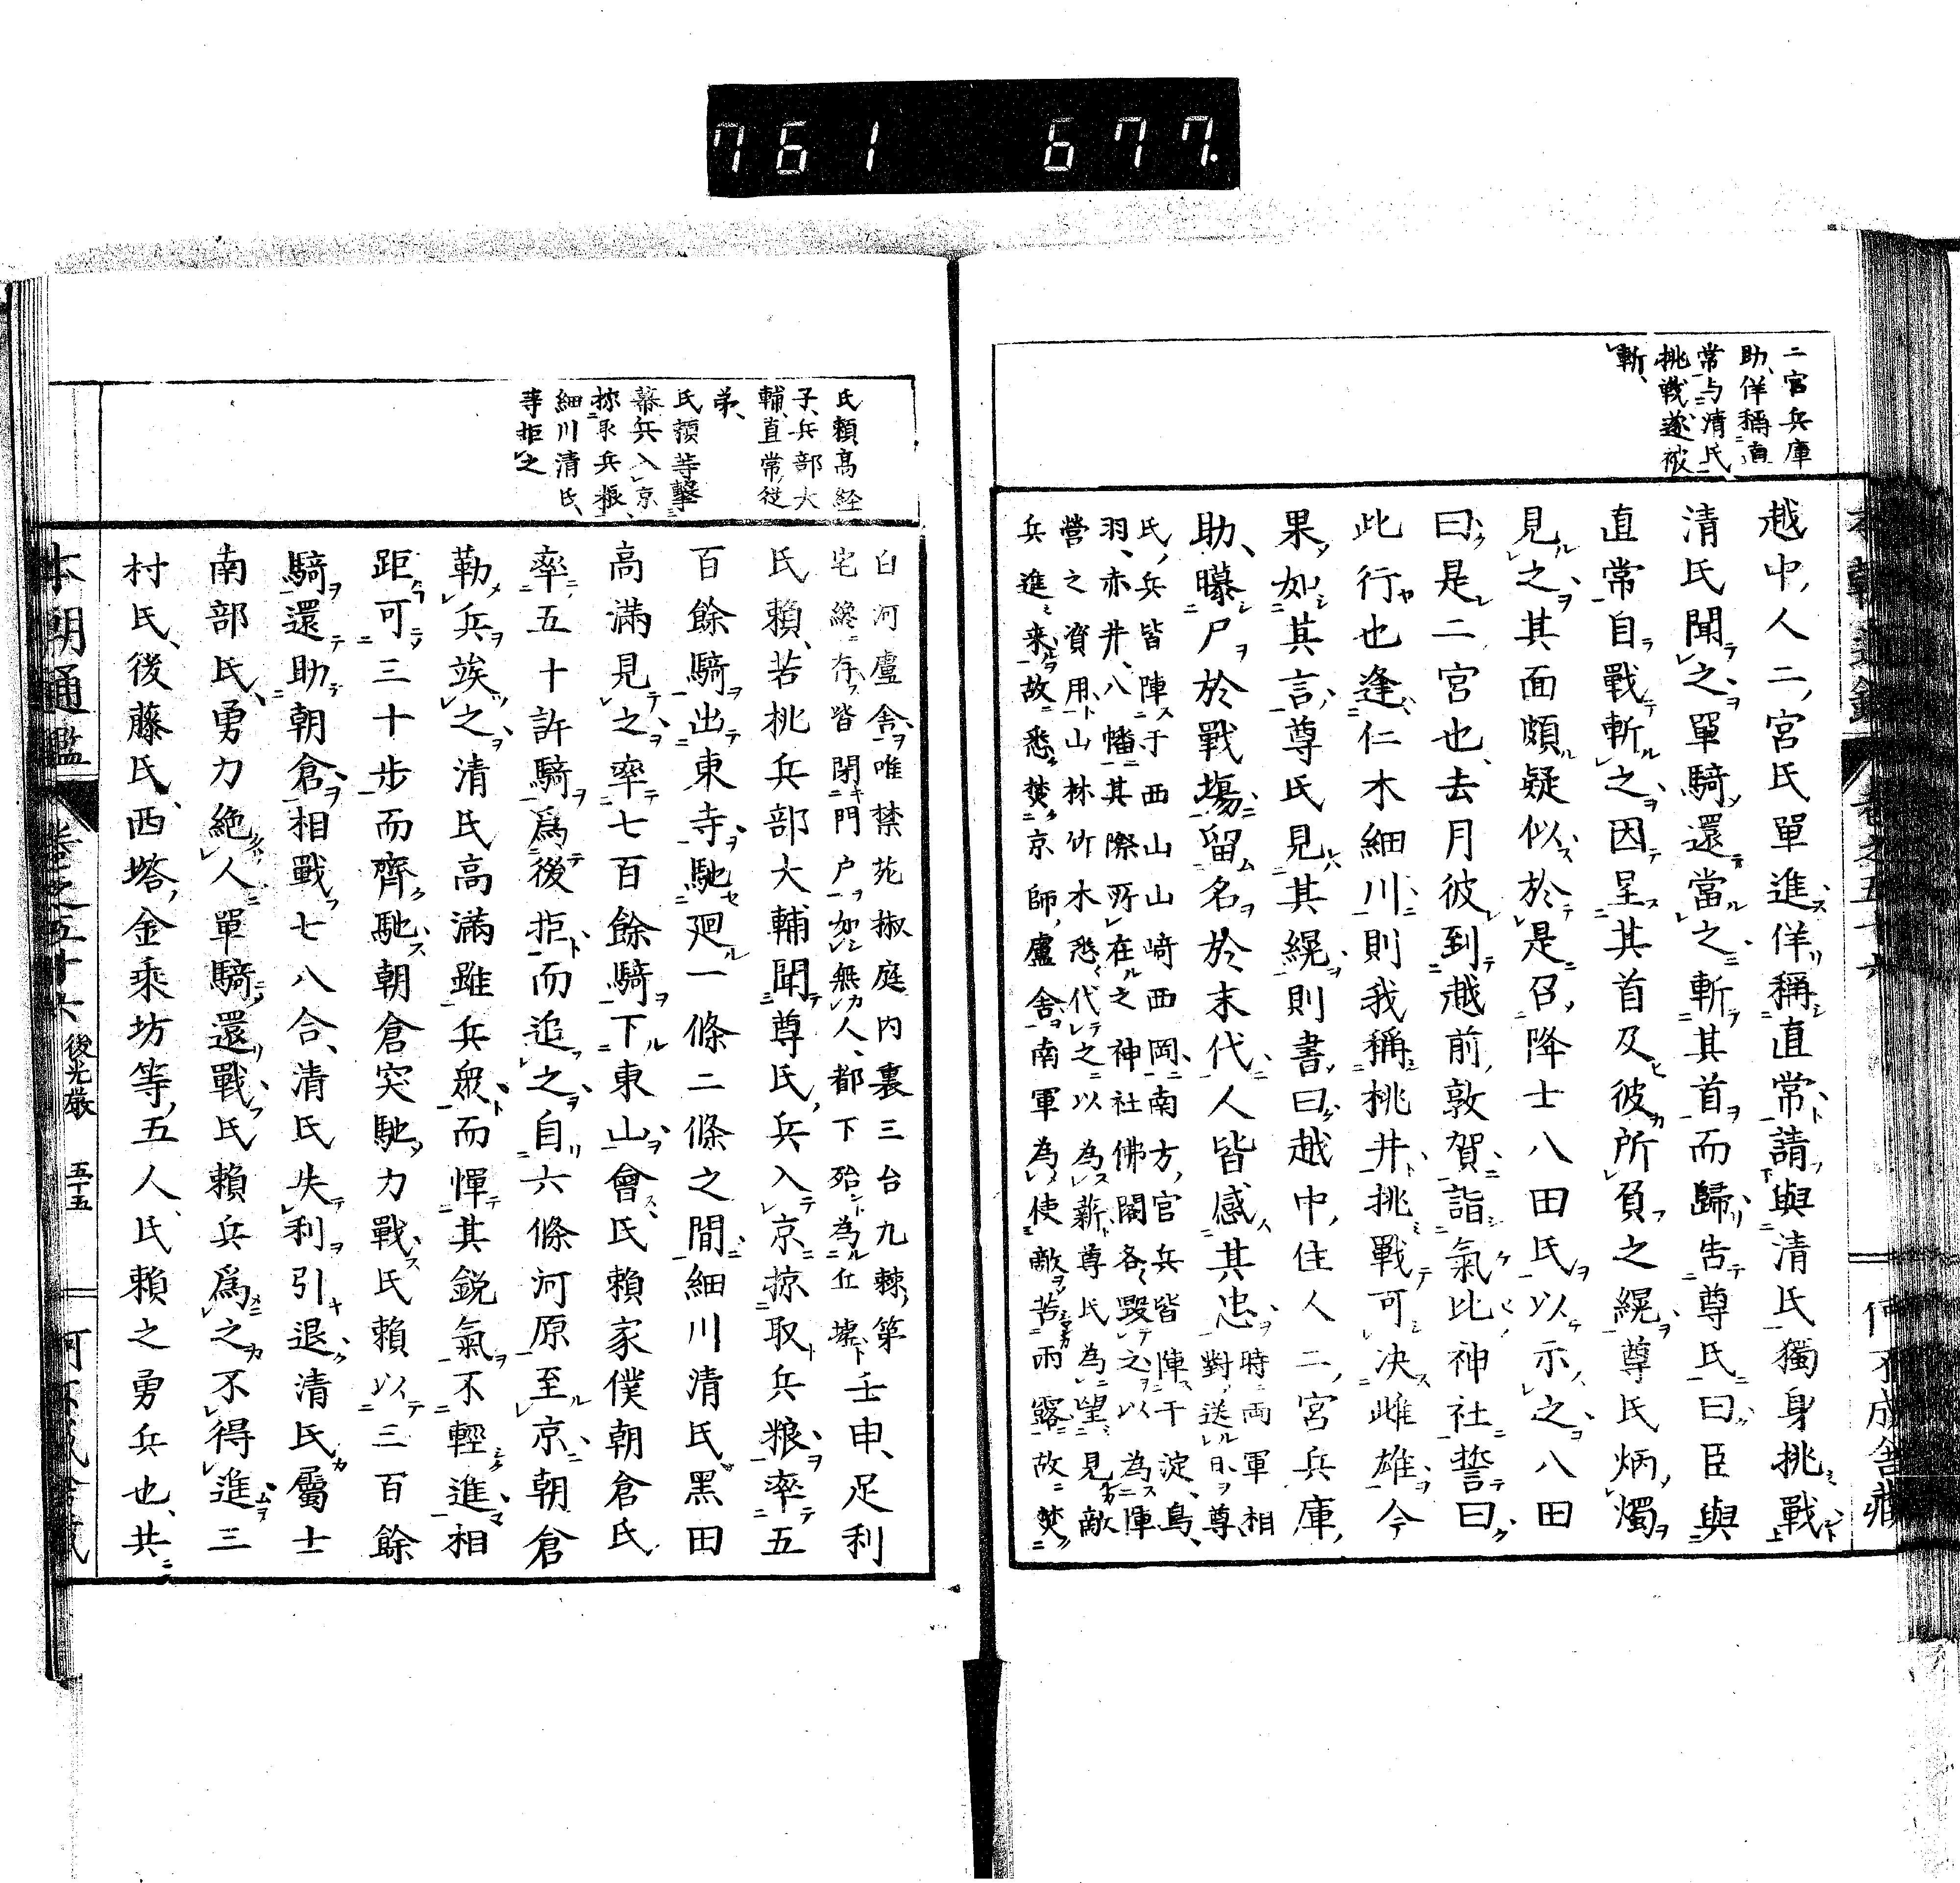 761 677
二宮兵庫
助、佯稱直
常与清氏
挑戰遂被
斬、
越中人二宮氏單進佯稱直常請與清氏獨身挑戰
清氏聞之單騎還當之斬其首而歸告尊氏曰臣與
直常自戰斬之因呈其首及彼所負之縨尊氏炳燭
見之其面頗疑似於是召降士八田氏以示之八田
曰是二宮也、去月彼到越前敦賀詣氣比神社誓曰
此行也逢仁木細川則我稱桃井挑戰可决雌雄今
果如其言尊氏見其縨則書曰越中住人二宮兵庫
助、曝尸於戰場留名於末代人皆感其忠對送日尊
時兩軍相
氏兵皆陣于西山山崎西岡南方官兵皆陣于淀鳥
羽、赤井、八幡其際所在之神社佛閣各毀之以為陣
營之資用山林竹木悉代之以為薪尊氏為望見敵
兵進来故悉焚京師盧舍南軍為使敵苦雨露故焚
白河盧舍唯禁苑掖庭内裏三台九棘第
宅纔存皆閉門戶如無人、都下殆為丘墟
壬申、足利
氏賴、若桃兵部大輔聞尊氏兵入京掠取兵粮率五
百餘騎出東寺馳廻一條二條之間細川清氏黑田
高滿見之率七百餘騎下東山會氏賴家僕朝倉氏
率五十許騎爲後拒而追之自六條河原至京朝倉
勒兵竢之清氏高滿雖兵衆而憚其鋭氣不輕進相
距可三十步而齊馳朝倉突馳力戰氏賴以三百餘
騎還助朝倉相戰七八合、清氏失利引退清氏屬士
南部氏、勇力絶人單騎還戰氏賴兵爲之不得進三
村氏、後藤氏、西塔、金乘坊等、五人、氏賴之勇兵也、共
氏賴高経
子、兵部大
輔、直常從
弟、
氏頼等擊
幕兵入京
掠取兵粮、
細川清氏、
等拒之
本朝通鑑
卷之五十六
後光嚴
五十五
何不成舍藏